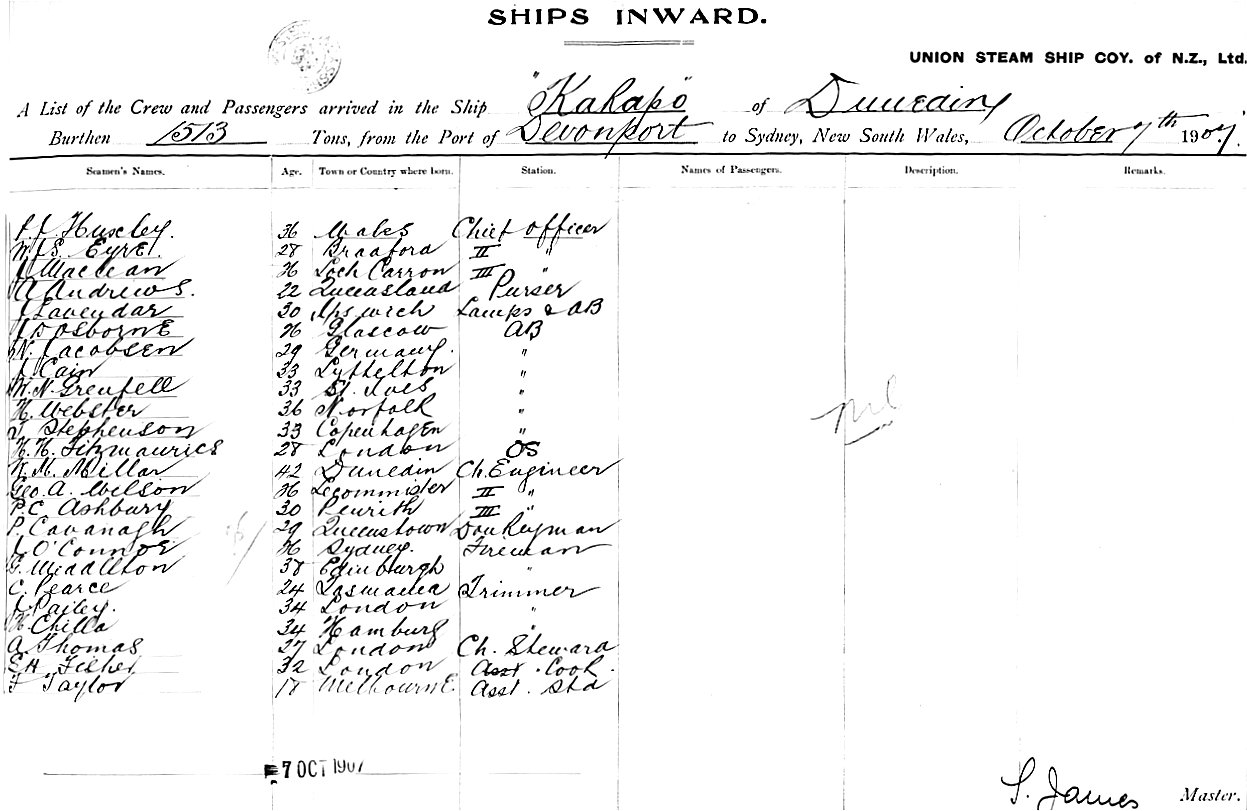 SHIPS INWARD.
UNION STEAM SHIP COY. of N.Z., Ltd.
A List of the Crew and Passengers arrived in the Ship "Kahapo" of Dunedin
Burthen 1513 Tons, from the Port of Devonport to Sydney, New South Wales, October 7th 1907.
Seamen's Names. Age. Town or Country where born. Station. Names of Passengers. Description. Remarks.
Huxley. 36 Wales Chief Officer
W.J.S. Eyre. 28 Bradford II "
J Maclean 36 Loch Carron III "
A Andrews. 22 Queensland Purser
J Lavendar 30 Ipswich Lamps & AB
J D Osborne 26 Glascow AB
N. Jacobsen 29 Germany. "
J Cain 33 Lyttelton "
W.N. Grenfell 33 St. Ives "
H. Webster 36 Norfolk "
J Stephenson 33 Copenhagen "
H. H. Fitzmaurice 28 London OS
W. M. Millar 42 Dunedin Ch. Engineer
Geo. A. Wilson 36 Leommister II "
P.C. Ashbury 30 Penrith III "
P. Cavanagh 29 Queenstown Donkeyman
J O'Connor 36 Sydney. Fireman
G. Middleton 38 Edinburgh "
C. Pearce 24 Tasmania Trimmer
J Pailey. 34 London "
H. Chilla 34 Hamburg "
A Thomas 27 London Ch. Steward
E H Fisher 32 London Asst. Cook.
F Taylor 18 Melbourne Asst. Std
nil
7 OCT 1907
S. James Master.